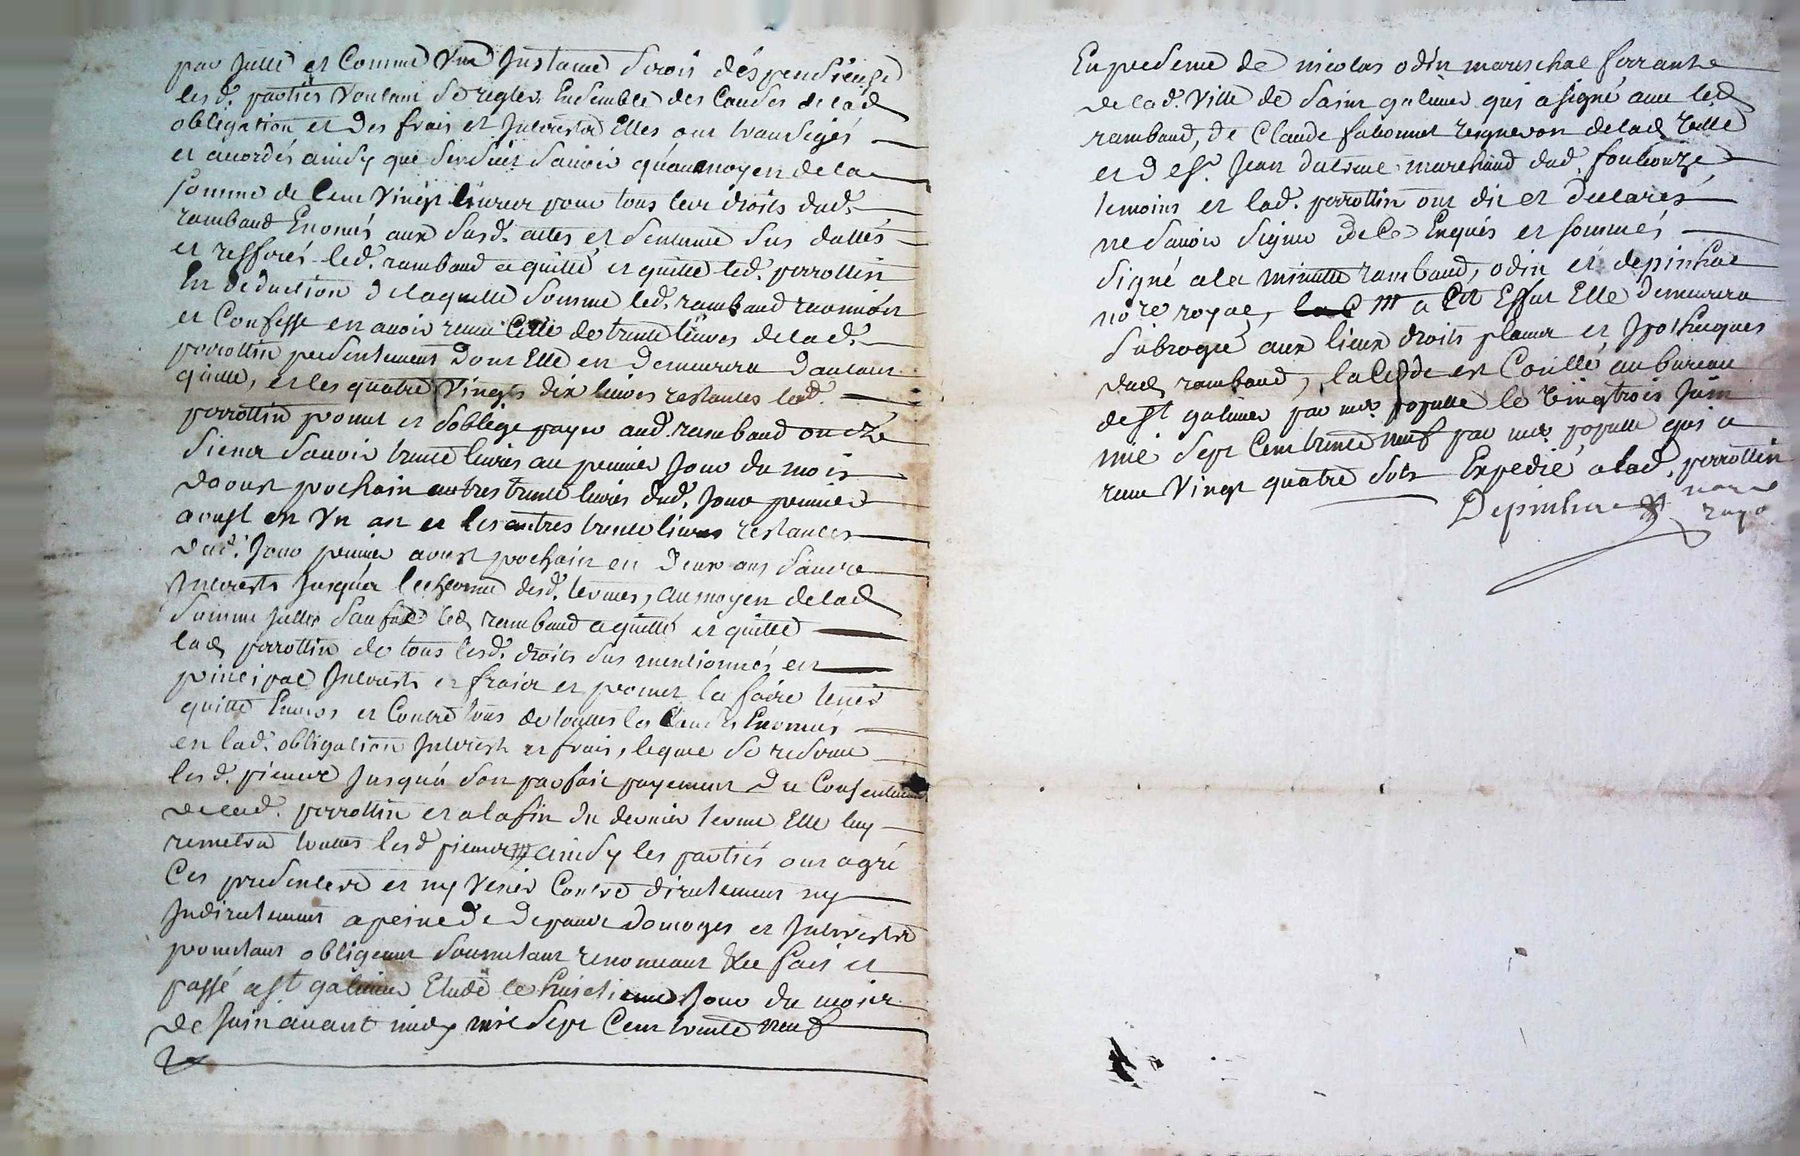 par Icelle et Comme Une Instance serois déspendieuse
lesd. parties Voulant se regler Ensemble des Causes de lad
obligation et des frais et Interests Elles ont transigés
et acordés ainsy que sensuit savoir qu'au moyen de la
somme de Cent Vingt livres pour tous les droits dud.
rambaud Enoncés aux susd. actes et sentence sus dattés
et led. rambaud a quitté et quitte led. perrottin
En deduction de laquelle somme led. rambaud
et Confesse en avoir receu Celle de trente livres de lad.
perrottin presentement dont Elle en demeurera d'autant
quitte, et les quatre Vingts dix livres restantes lad
perrottin promet et s'oblige payer aud. rambaud ou ez
siens savoir trente livres au premier Jour du mois
daoust prochain autres trente livres dud. Jour premier
aoust en Un an et les autres trente livres restantes
dud. Jour premier aoust prochain en deux ans sans
Interests Jusqua desd. termes, au moyen de lad
somme led rambaud a quitté et quitte
lad perrottin de tous lesd. droits sus mentionnés en
principal Interests et fraix et promet la faire tenir
quitte Envers et Contre tous de toutes les Enoncés
en lad. obligation Interests et frais, lequel se reserve
lesd. pieces Jusqu'a son parfait payement Du Consentement
de lad. perrottin et a la fin du dernier terme Elle luy
remetra toutes lesd pieces ainsy les parties ont agré
Ces presentes et ny Venir Contre directement ny
Indirectement a peine de Depans Domages et Interests
prometant obligeant soumetant renonceant &c fait et
passé a st galmier Etude le huictieme Jour du mois
de Juin avant midy mil sept Cent trente neuf
En presence de nicolas odin mareschal ferrant
de lad. Ville de saint galmier qui a signé avec led
rambaud, de Claude de lad Ville
et de sr. Jean marchand dud. fouliouze
temoins et lad. perrottin ont dit et declarés
ne savoir signer de Ce Enquis et sommés
signé a la minutte rambaud, odin et depinhac
nore royal, a Cet Effet Elle demeurera
subrogée aux lieux droits place et Ipotheques
dud rambaud, la Cede est Conllé au bureau
de st galmier par mr populle le Vingtrois Juin
mil sept Cent trente neuf par mr populle qui a
receu Vingt quatre sols Expedié a lad. perrottin
Depinhac nore
roya